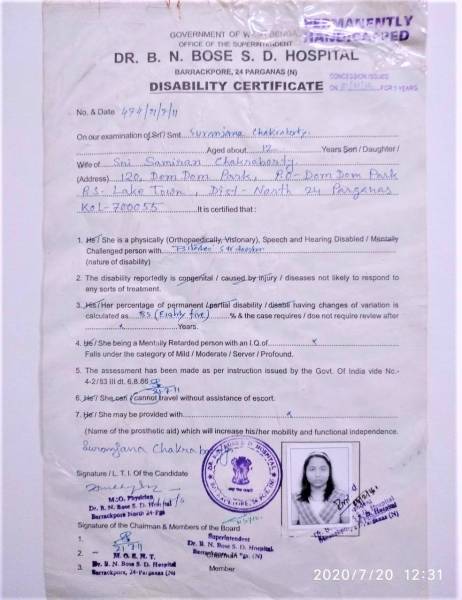 PERMANENTLY
HANDICAPPED
GOVERNMENT OF WEST BENGAL
OFFICE OF THE SUPERINTENDENT
DR. B. N. BOSE S. D. HOSPITAL
BARRACKPORE, 24 PARGANAS (N)
DISABILITY CERTIFICATE
CONCESSION ISSUED
ON FOR 5 YEARS
No. & Date 474/21/7/11
On our examination of Sri / Smt. Suromjana Chakraborty
Aged about 12 Years Son / Daughter /
Wife of Sri Samiran Chakraborty
(Address) 120, Dom Dom Park, P.O- Dom Dom Park
P.S- Lake Town, Dist- North 24 Parganas
Kol-700055 It is certified that :
1. He / She is a physically (Orthopaedically, Visionary), Speech and Hearing Disabled / Mentally
Challenged person with
(nature of disability)
2. The disability reportedly is congenital / caused by injury / diseases not likely to respond to
any sorts of treatment.
3. His / Her percentage of permanent / partial disability / disable having changes of variation is
calculated as 85 (Eighty five) % & the case requires / doe not require review after
x Years.
4. He / She being a Mentally Retarded person with an I.Q. of x
Falls under the category of Mild / Moderate / Server / Profound.
5. The assessment has been made as per instruction issued by the Govt. Of India vide No.-
4-2/83 III dt. 6.8.86
21.7.11
6. He / She can / cannot travel without assistance of escort.
7. He / She may be provided with x
(Name of the prosthetic aid) which will increase his/her mobility and functional independence.
Suromjana Chakraborty
Signature / L.T.I. Of the Candidate
M.O. Physician
Dr. B. N. Bose S. D. Hospital
Barrackpore North 24 PGS
Signature of the Chairman & Members of the Board
1.
21.7.11
2. M. O. E. N. T.
3. Dr. B. N. Bose S. D. Hospital
Barrackpore, 24-Parganas (N)
Superintendent
Dr. B. N. Bose S. D. Hospital
Barrackpore, 24 Pgs. (N)
Chairman
Member
2020/7/20 12:31